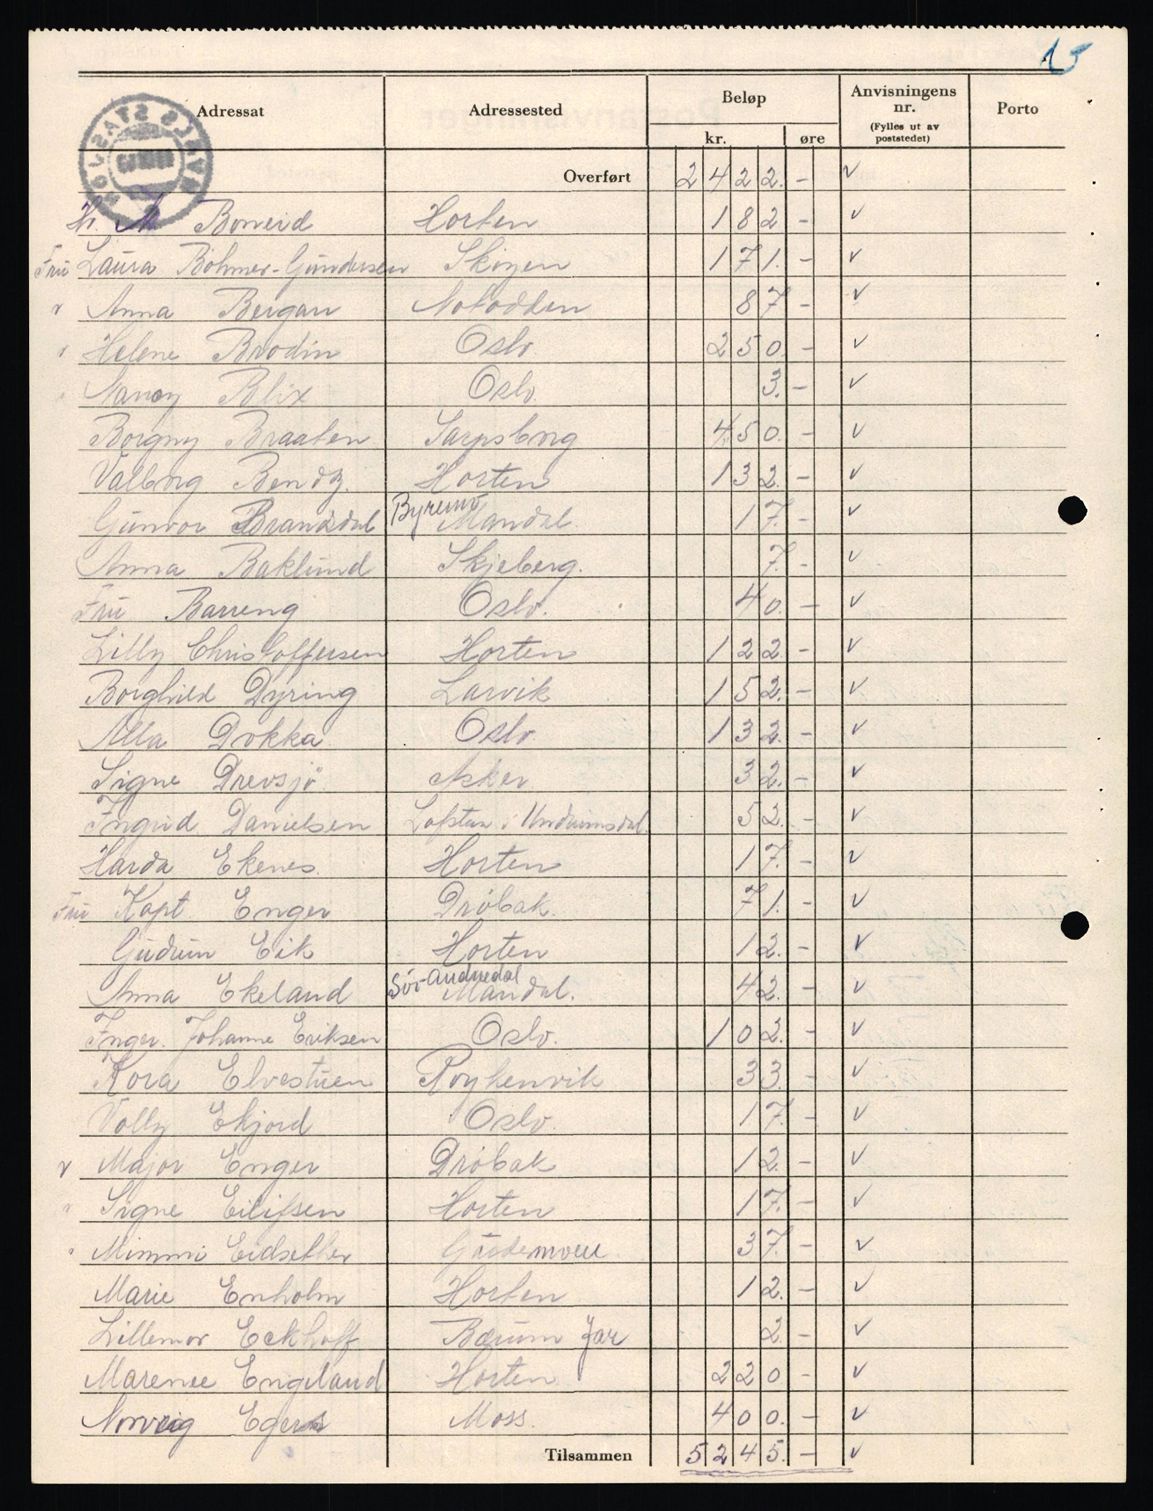 15
Adressat Adressested Beløp kr. øre Anvisningens nr. (Fylles ut av poststedet) Porto
Overført 2422.- v
Hr. M Borreid Horten 182 - v
Fru Laura Böhmer-Gundersen Skøyen 171.- v
v Anna Bergan Notodden 87 - v
Helene Brodin Oslo 250.- v
Nancy Blix Oslo. 3.- v
Borgny Braaten Sarpsborg 450.- v
Valborg Bendz. Horten 132.- v
Gunvor Brandsdal Byremo Mandal. 17.- v
Anna Baklund Skjeberg. 7.- v
Fru Barreng Oslo. 40.- v
Lilly Christoffersen Horten 122.- v
Borghild Dyring Larvik 152.- v
Alla Dokka Oslo. 132.- v
Signe Drevsjö Asker 32.- v
Ingrid Danielsen i Undrumsdal. 52.- v
Harda Ekenes. Horten 17.- v
Fru Kapt Enger Drøbak. 71.- v
Gudrun Eik Horten 12.- v
Anna Ekeland Sör-Audnedal Mandal. 42.- v
Inger. Johanne Eriksen Oslo. 102.- v
Kora Elvestuen Røykenvik 33 - v
Volly Ekjord Oslo. 17.- v
v Major Enger Drøbak 12.- v
Signe Eilifsen Horten 17.- v
Mimmi Eidsether Gardemoen. 37.- v
Marie Enholm Horten 12.- v
Lillemor Eckhoff Bærum Jar 2.- v
Marenee Engeland Horten 220 - v
Norveig Egers Moss. 400.- v
Tilsammen 5245.- v